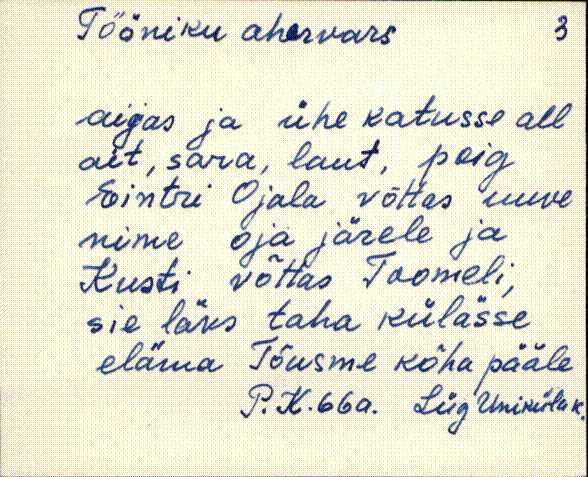 Tööniku ahervars 3
aigas ja ühe katusse all
ait, sara, laut, poig
Eintri Ojala võttas uuve
nime oja järele ja
Kusti võttas Toomeli,
sie läks taha külässe
eläma Tõusme kõha pääle
P.K. 66a. Lüg Uniküla k.